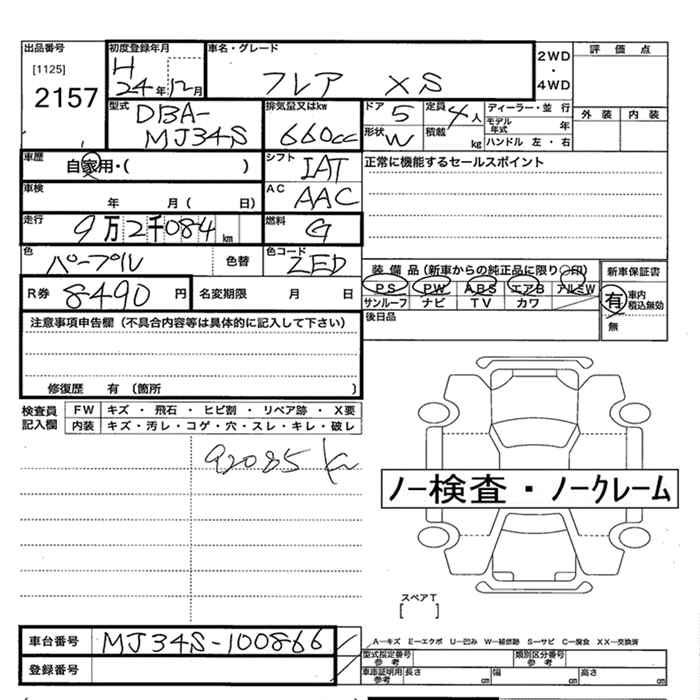 出品番号
[1125]
2157
初度登録年月
H
24年12月
車名・グレード
フレア XS
2WD
・
4WD
評価点
外装 内装
型式
DBA-
MJ34S
排気量又はkw
660cc
ドア 5
形状 W
定員 4人
積載 kg
ディーラー・並行
モデル年式 年
ハンドル 左・右
車歴
自家用・( )
シフト
IAT
正常に機能するセールスポイント
車検
年 月( 日)
AC
AAC
走行
9万2千084km
燃料
G
色
パープル
色替
色コード
ZED
装備品(新車からの純正品に限り○印)
PS PW ABS エアB アルミW
サンルーフ ナビ TV カワ
後日品
新車保証書
有 車内積込無効
無
R券 8490円
名変期限 月 日
注意事項申告欄(不具合内容等は具体的に記入して下さい)
修復歴 有(箇所 )
検査員記入欄
FW キズ・飛石・ヒビ割・リペア跡・X要
内装 キズ・汚レ・コゲ・穴・スレ・キレ・破レ
92085 km
ノー検査・ノークレーム
スペアT
[ ]
車台番号 MJ34S-100866
登録番号
A-キズ E-エクボ U-凹み W-補修跡 S-サビ C-腐食 XX-交換済
型式指定番号 参考
類別区分番号 参考
車庫証明用 参考
長さ cm 幅 cm 高さ cm